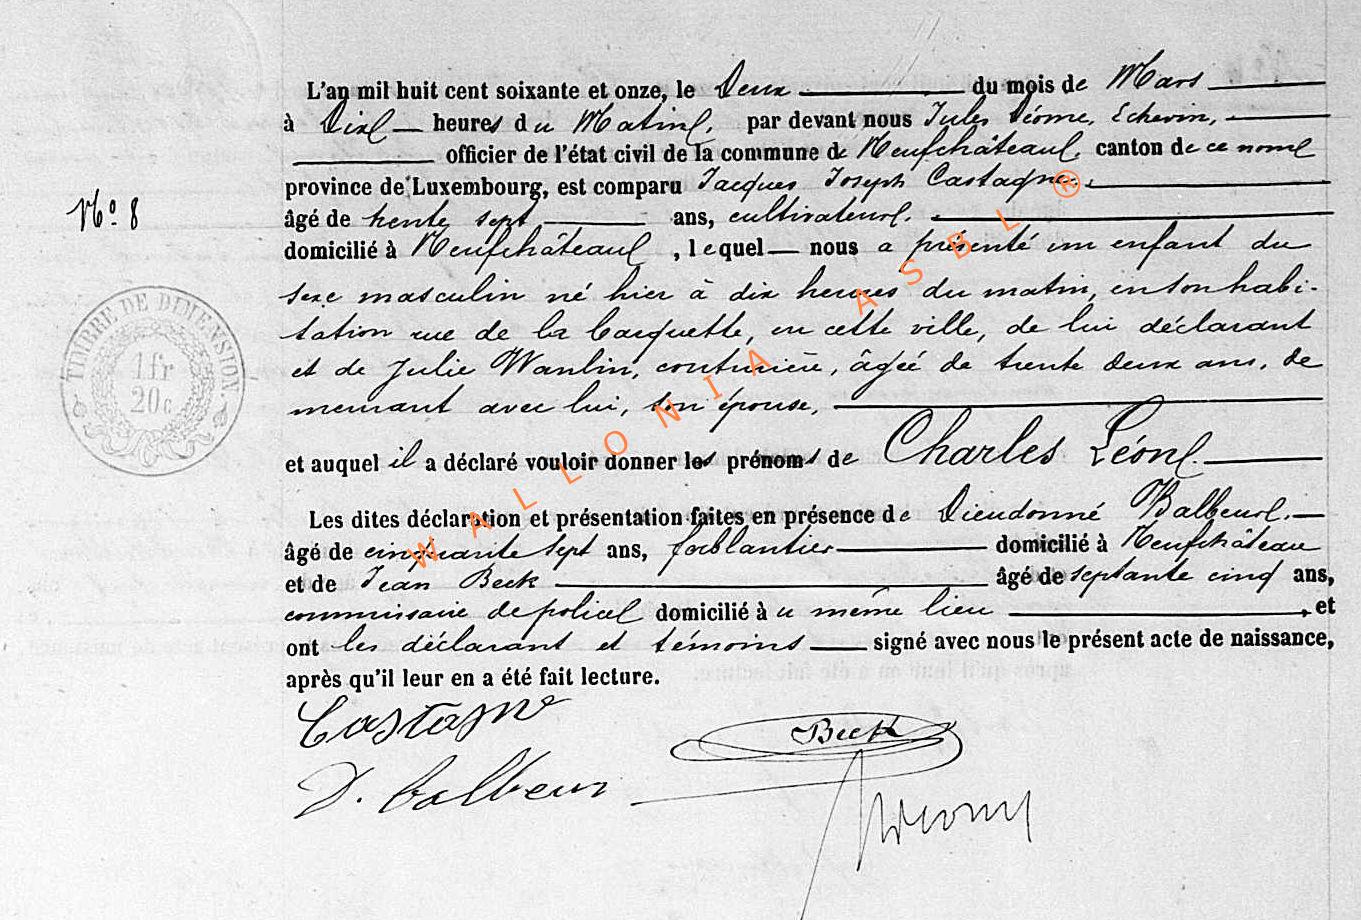 L'an mil huit cent soixante et onze, le Deux du mois de Mars
à Dix heures du Matin, par devant nous Jules Déome, Echevin,
officier de l'état civil de la commune de Neufchâteau, canton de ce nom
province de Luxembourg, est comparu Jacques Joseph Castagne,
N° 8
âgé de trente sept ans, cultivateur,
domicilié à Neufchâteau, lequel nous a présenté un enfant du
sexe masculin né hier à dix heures du matin, en son habi-
tation rue de la Carquette, en cette ville, de lui déclarant
et de Julie Wanlin, couturière, âgée de trente deux ans, de
meurant avec lui, son épouse,
et auquel il a déclaré vouloir donner les prénoms de Charles Léon.
Les dites déclaration et présentation faites en présence de Dieudonné Balbeur,
âgé de cinquante sept ans, ferblantier domicilié à Neufchâteau
et de Jean Beck âgé de septante cinq ans,
commissaire de police domicilié à u même lieu, et
ont les déclarant et témoins signé avec nous le présent acte de naissance,
après qu'il leur en a été fait lecture.
Castagne
Beck
D. Balbeur
TIMBRE DE DIMENSION
1 fr
20 c
WALLONIA ASBL ®